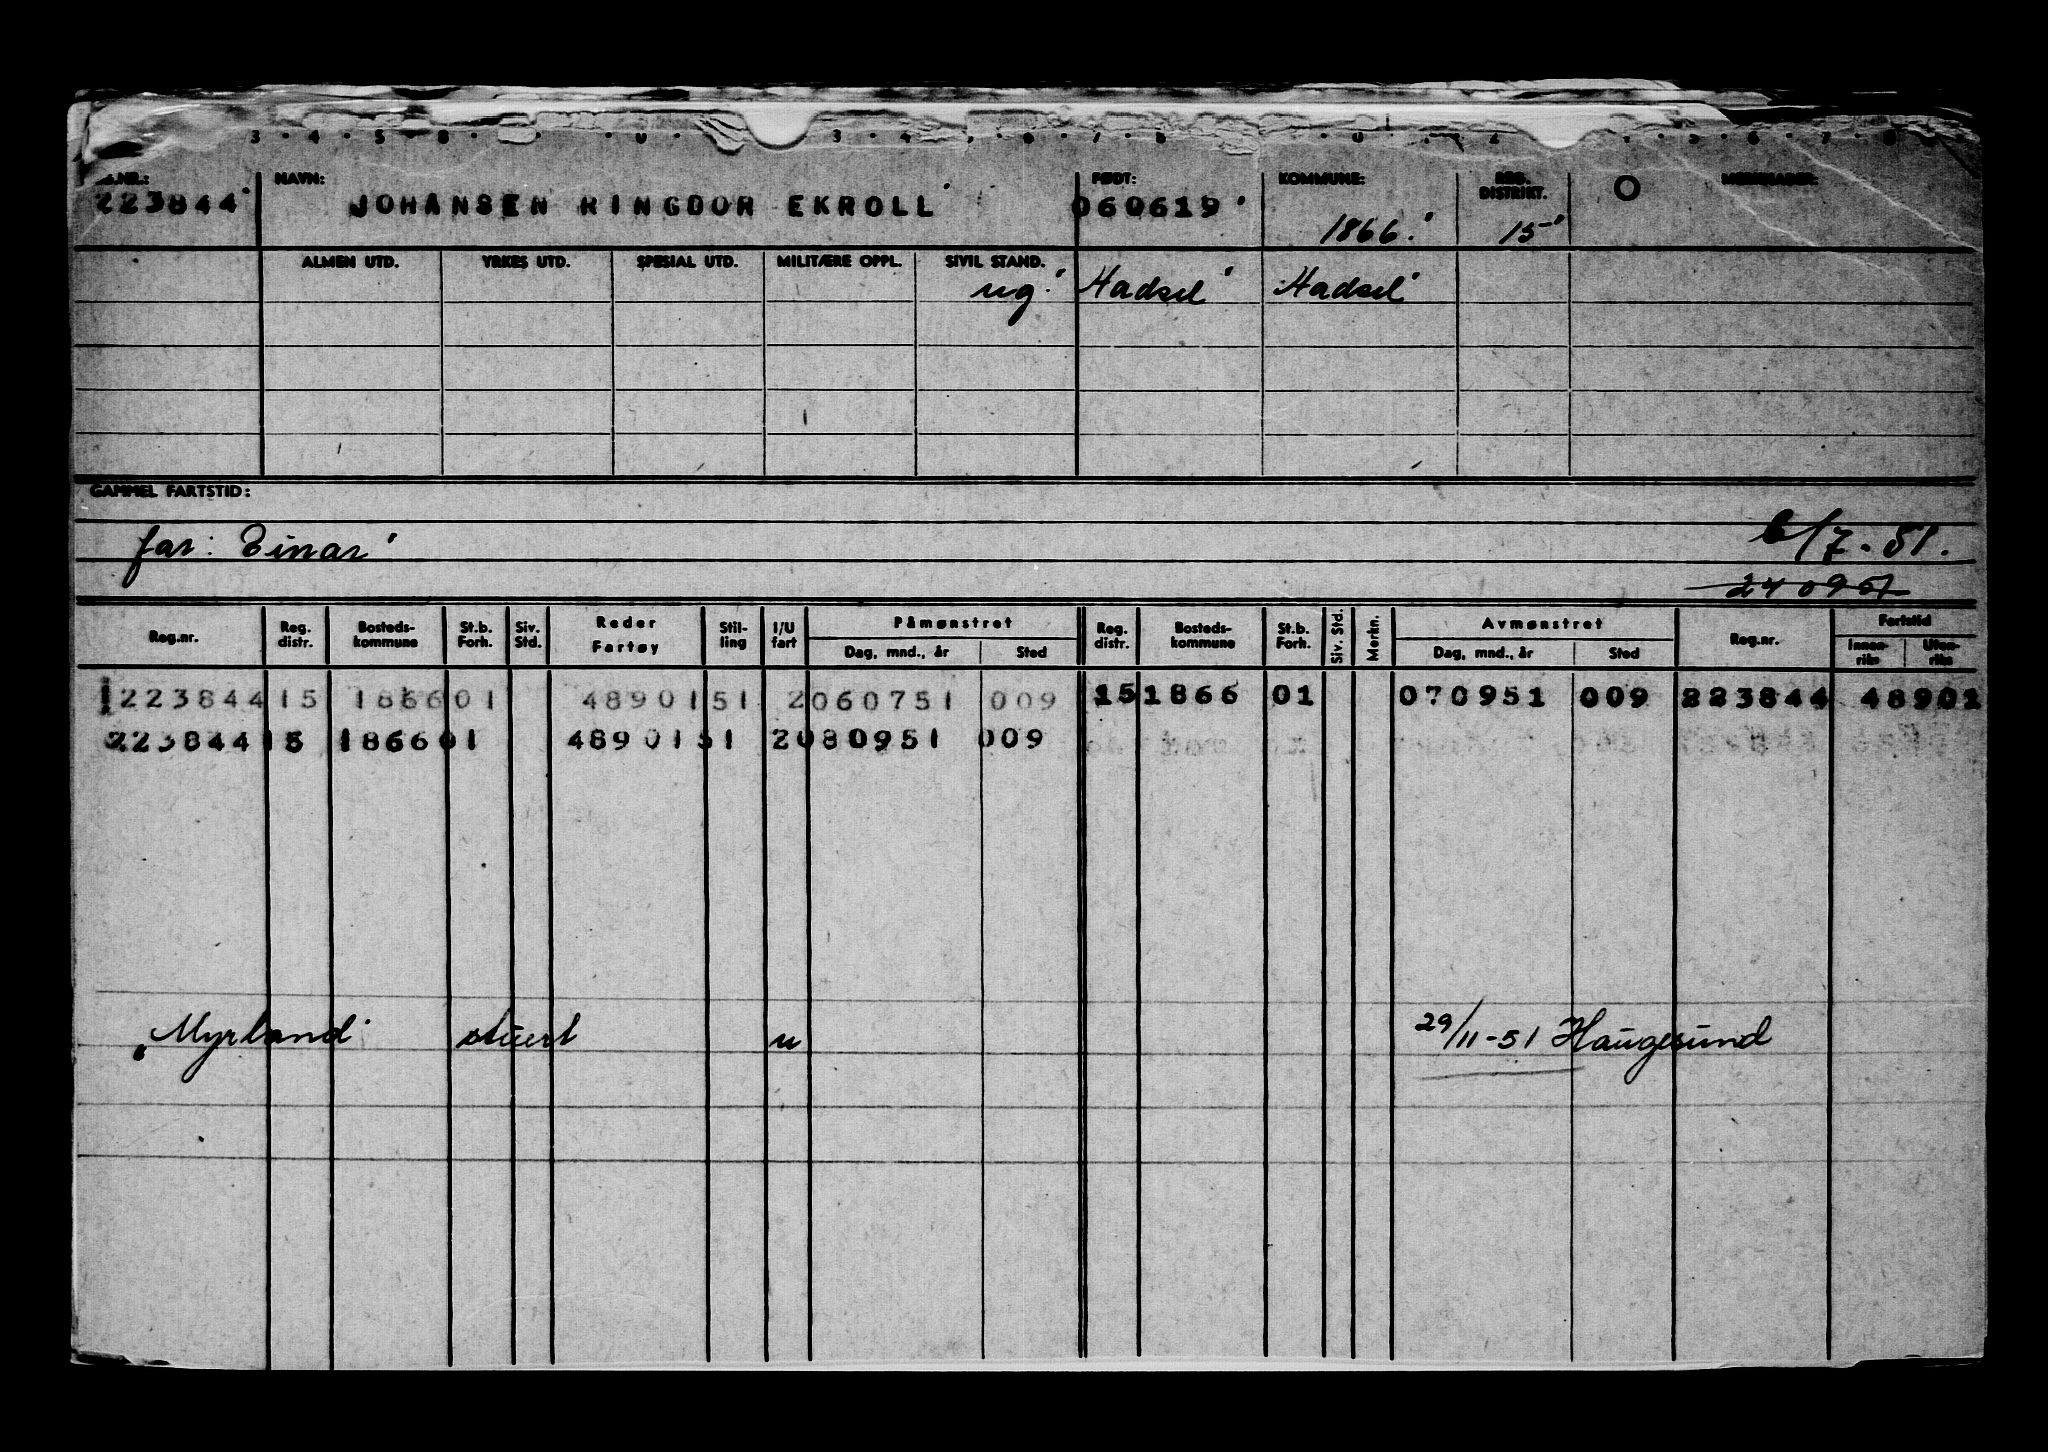 NAVN: FØDT: KOMMUNE: REG. DISTRIKT.
223844 JOHANSEN RINGDOR EKROLL 060619 1866. 15
ALMEN UTD. YRKES UTD. SPESIAL UTD. MILITÆRE OPPL. SIVIL STAND.
ug. Hadsel Hadsel
GAMMEL FARTSTID:
far: Einar 6/7-51.
240951
Reg.nr. Reg. distr. Bosteds-kommune St.b. Forh. Siv. Std. Reder Fartøy Stil-ling I/U fart Påmønstret Dag, mnd., år Sted Reg. distr. Bosteds-kommune St.b. Forh. Siv. Std. Merkn. Avmønstret Dag, mnd., år Sted Reg.nr. Fartstid Innen-riks Uten-riks
223844 15 1866 01 48901 51 2 060751 009 15 1866 01 070951 009 223844 48901
223844 15 1866 01 48901 51 2 080951 009
Myrland stuert u 29/11-51 Haugesund